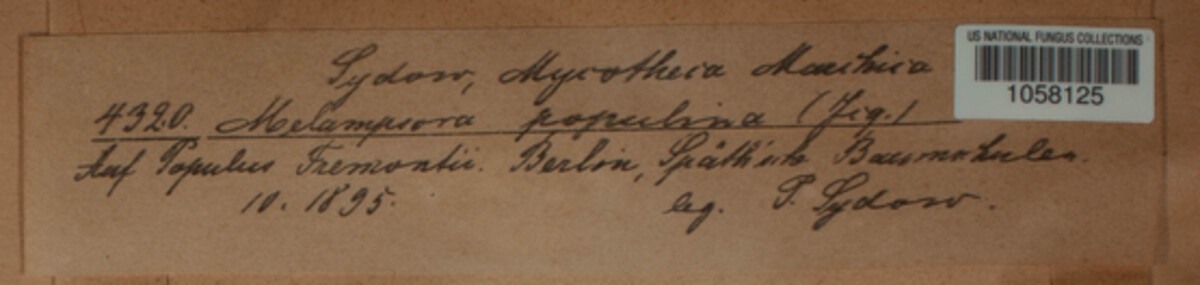 Sydow, Mycotheca Marchica
4320. Melampsora populina (Jcq.)
Auf Populus Fremontii. Berlin, Späth'sche Baumschulen.
10. 1895. leg. P. Sydow.
US NATIONAL FUNGUS COLLECTIONS
1058125